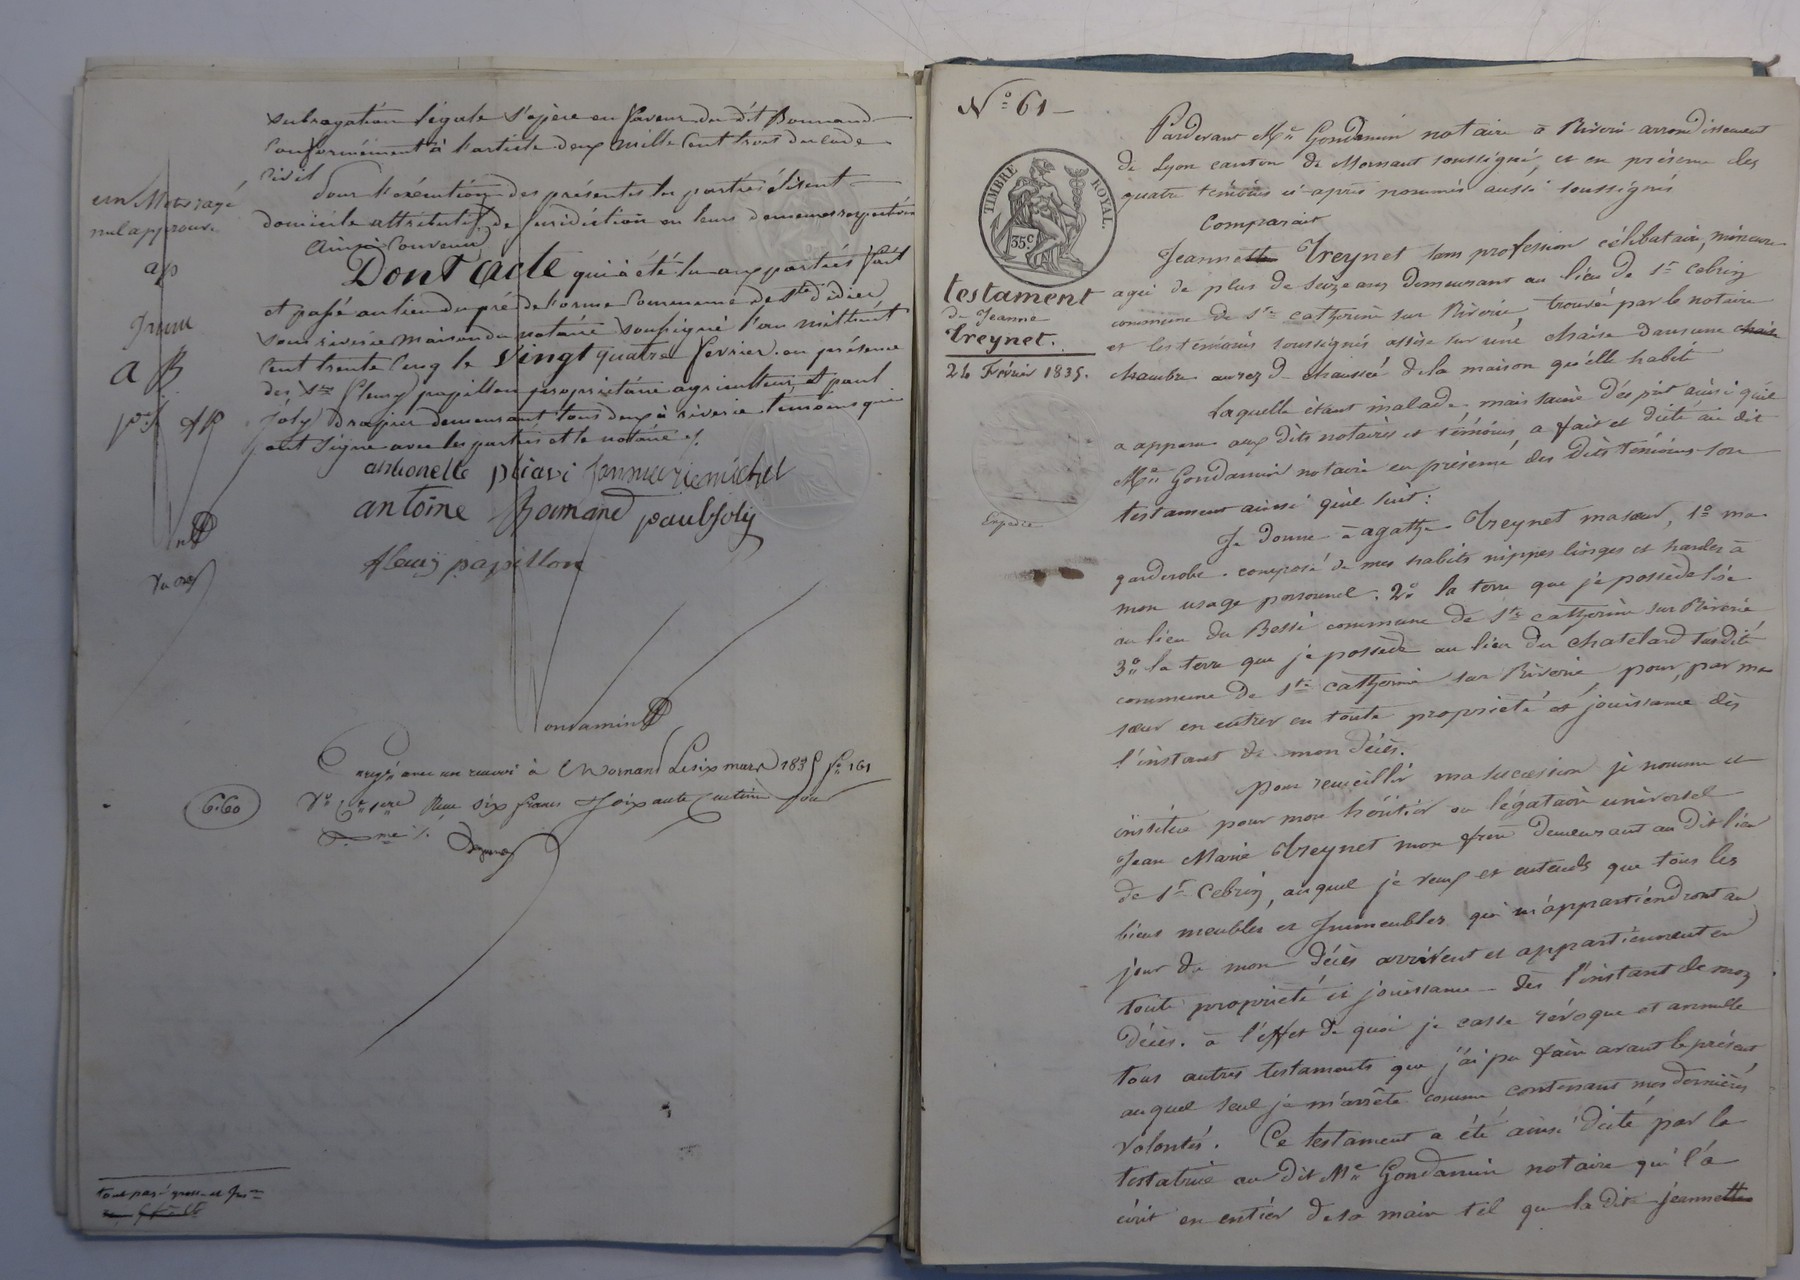 subrogation légale s'opère en faveur du dit Bonnand
conformément à l'article deux mille cent trois du code
civil
Pour l'exécution des présentes les parties élisent
domicile attributif de juridiction en leurs demeures respectives
ainsi convenu
Dont acte qui a été lu aux parties fait
et passé au lieu du pré de
sous riverie maison du notaire soussigné l'an mil huit
cent trente cinq le vingt quatre fevrier en présence
des Srs fleury papillon propriétaire agriculteur et paul
joly Drapier demeurant tous deux à riverie témoins qui
ont signé avec les parties et le notaire
antionette jeanmarie michel
antoine Bonnand paul Joly
fleury papillon
un Mot rayé
nul approuvé
ap
A B
AP
Gondamin
Enrgé avec un renvoi à Mornant Le six mars 1835 fo 161
Vo Reçu six francs soixante centimes pour
6.60
No 61
TIMBRE ROYAL.
35c.
testament
de Jeanne
treynet.
24 Février 1835.
Expédié
Pardevant Me Gondamin notaire à Riverie arrondissement
de Lyon canton de Mornant soussigné, et en présence des
quatre témoins ci-après nommés aussi soussignés
Comparait
Jeannette treynet sans profession célibataire, mineure
agée de plus de seize ans demeurant au lieu de st Cebrin
commune de ste catherine sur Riverie, trouvée par le notaire
et les témoins soussignés assise sur une chaise dans une chaise
chambre au rez de chaussée de la maison qu'elle habite
Laquelle étant malade mais saine d'esprit ainsi qu'il
a apparu aux dits notaires et témoins, a fait et dicté au dit
Me Gondamin notaire en présence des dits témoins son
testament ainsi qu'il suit:
Je donne à agathe treynet ma sœur, 1o ma
garderobe composé de mes habits nippes linges et hardes à
mon usage personnel. 2o la terre que je possède sise
au lieu du Bessi commune de ste catherine sur Riverie
3o la terre que je possède au lieu du chatelard susdite
commune de ste catherine sur Riverie, pour, par ma
sœur en entrer en toute propriété et jouissance dès
l'instant de mon décès.
pour recueillir ma succession je nomme et
institue pour mon héritier ou légataire universel
Jean Marie treynet mon frère demeurant au dit lieu
de st Cebrin, auquel je veux et entends que tous les
biens meubles et Immeubles qui m'appartiendront au
jour de mon décès arrivent et appartiennent en
toute propriété et jouissance dès l'instant de mon
décès. à l'effet de quoi je casse révoque et annulle
tous autres testaments que j'ai pu faire avant le présent,
auquel seul je m'arrête comme contenant mes dernières
volontés. Ce testament a été ainsi dicté par la
testatrice au dit Me Gondamin notaire qui l'a
écrit en entier de sa main tel que la dite jeannette